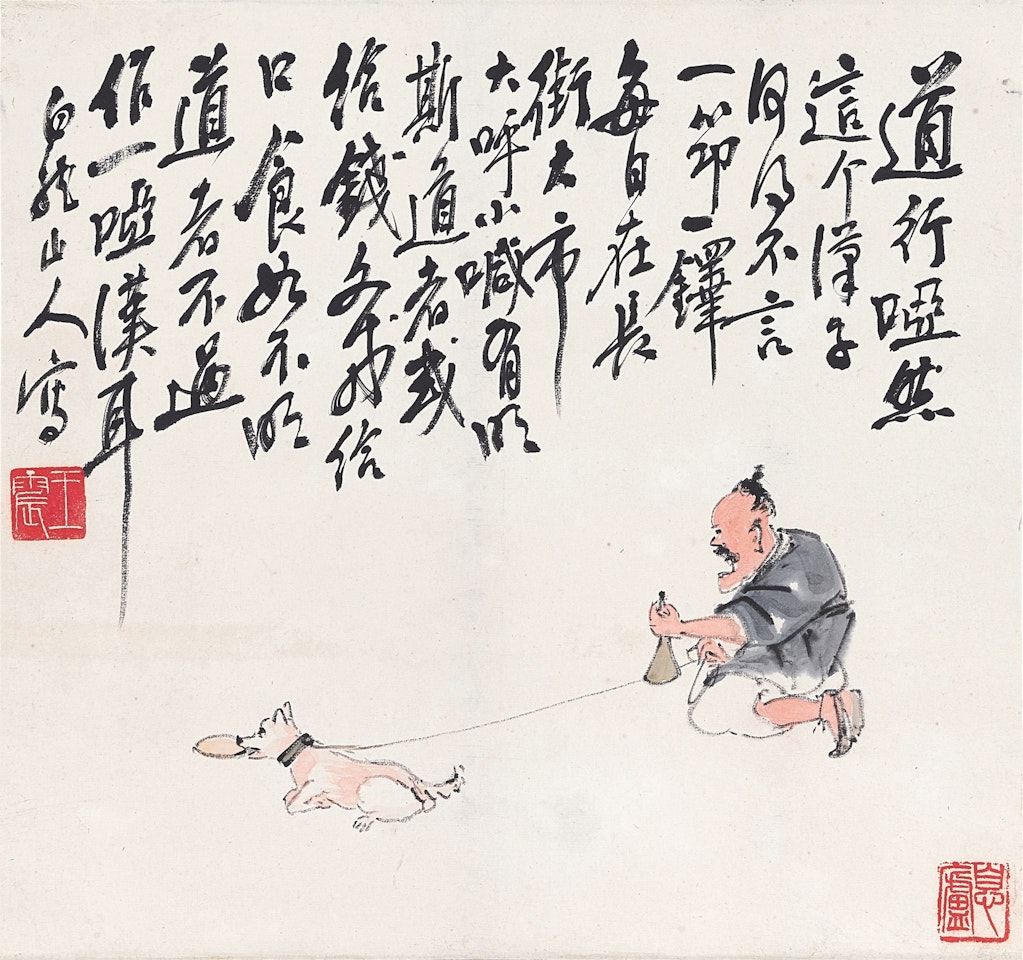 道行啞然
這个漢子
何得不言
一筇一鐸
每日在長
街大市
大呼小喊有明
斯道者或
給錢文或給
口食如不明
道者不過
作一啞漢耳
白龍山人寫
王震